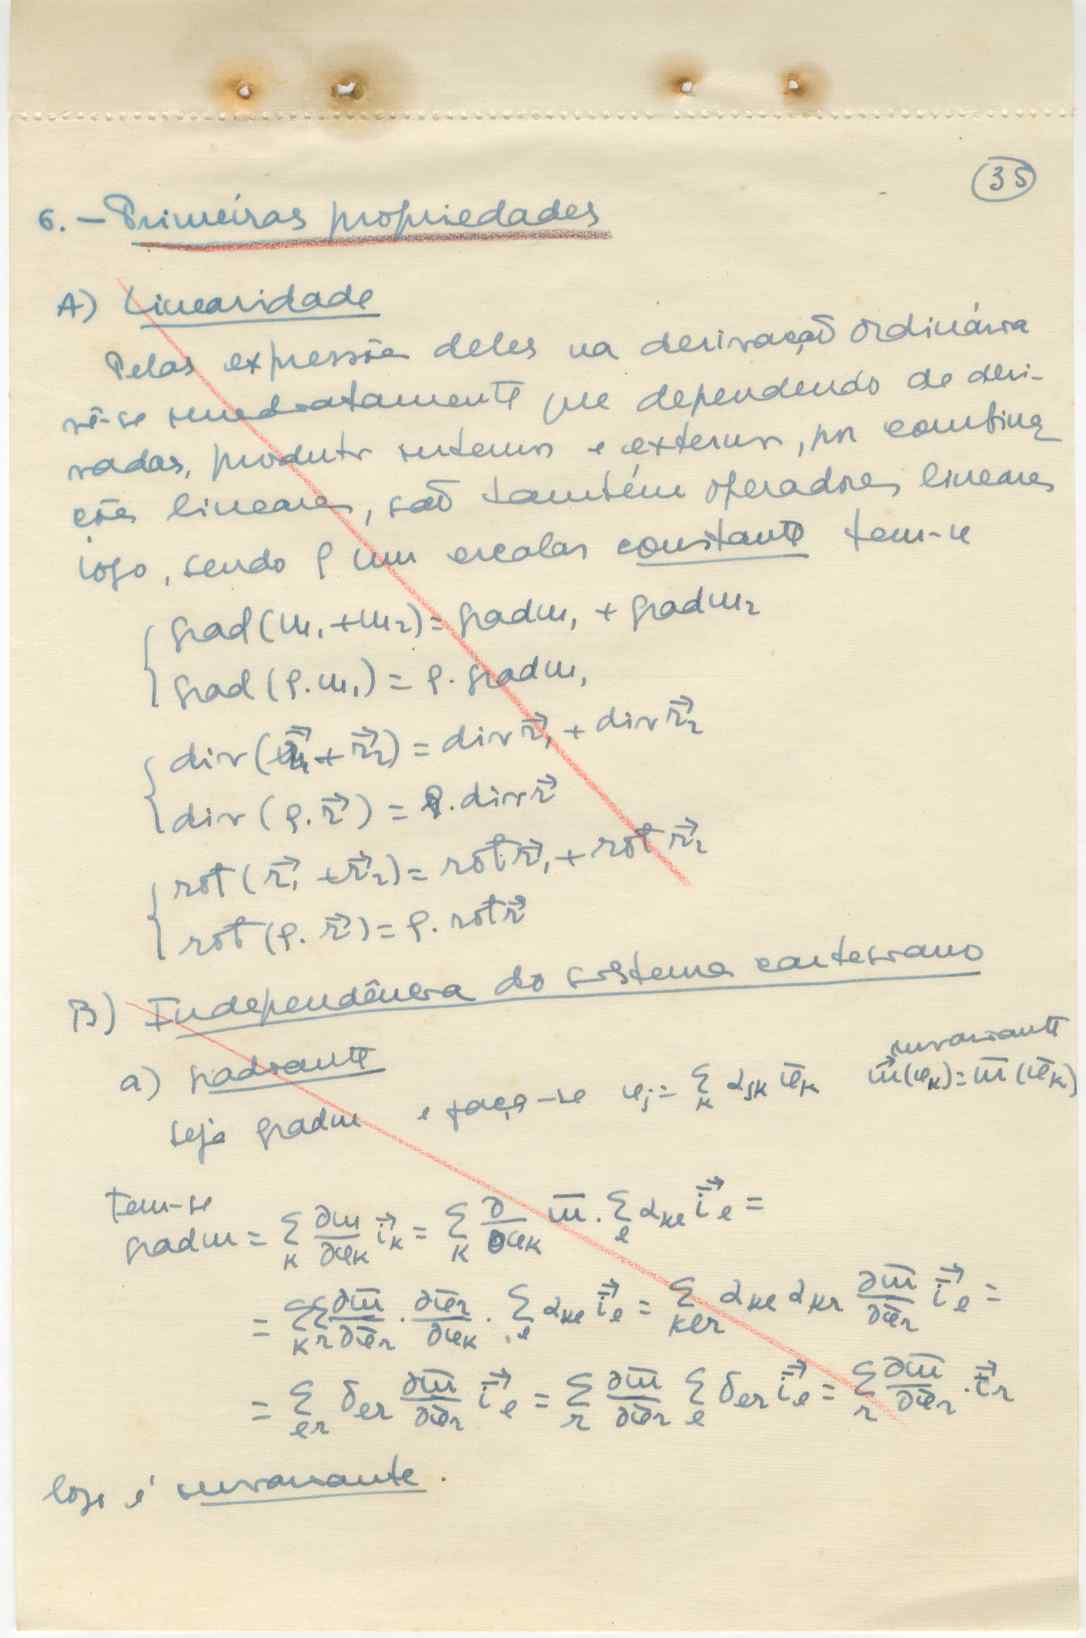 35
6. – Primeiras propriedades
A) Linearidade
Pelas expressões deles na derivação ordinária
vê-se imediatamente que dependendo de deri-
vadas, produtos internos e externos, por combina
ções lineares, são também operadores lineares
logo, sendo ρ um escalar constante tem-se
grad(m₁ + m₂) = grad m₁ + grad m₂
grad (ρ.m₁) = ρ. grad m₁
div(r⃗₁ + r⃗₂) = div r⃗₁ + div r⃗₂
div (ρ. r⃗) = ρ. div r⃗
rot (r⃗₁ + r⃗₂) = rot r⃗₁ + rot r⃗₂
rot (ρ. r⃗) = ρ. rot r⃗
B) Independência do sistema cartesiano
a) gradiente
invariante
seja grad m e faça-se x_j = Σ_k α_jk x̄_k m(x_k) = m̄(x̄_k)
tem-se
grad m = Σ_k ∂m/∂x_k i⃗_k = Σ_k ∂/∂x_k m̄ . Σ_l α_kl i̅⃗_l =
= Σ_k Σ_r ∂m̄/∂x̄_r . ∂x̄_r/∂x_k . Σ_l α_kl i̅⃗_l = Σ_klr α_kl α_kr ∂m̄/∂x̄_r i̅⃗_l =
= Σ_lr δ_lr ∂m̄/∂x̄_r i̅⃗_l = Σ_r ∂m̄/∂x̄_r Σ_l δ_lr i̅⃗_l = Σ_r ∂m̄/∂x̄_r . i̅⃗_r
logo é invariante.